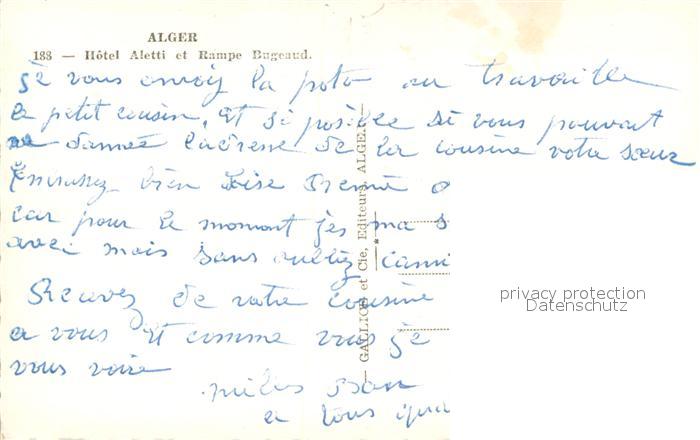 ALGER
188 — Hôtel Aletti et Rampe Bugeaud.
je vous envoij la poto au travaille
le petit cousin, et si posible si vous pouvait
me donneé ladresse de la cousine votre sœur
Emrassez bien
car pour le moment jes ma s
avec mois sans oubliez cami
Recevez de votre cousine
a vous et comme vous je
vous voire
milles
a tous
GALLICE et Cie, Editeurs, ALGER
privacy protection
Datenschutz